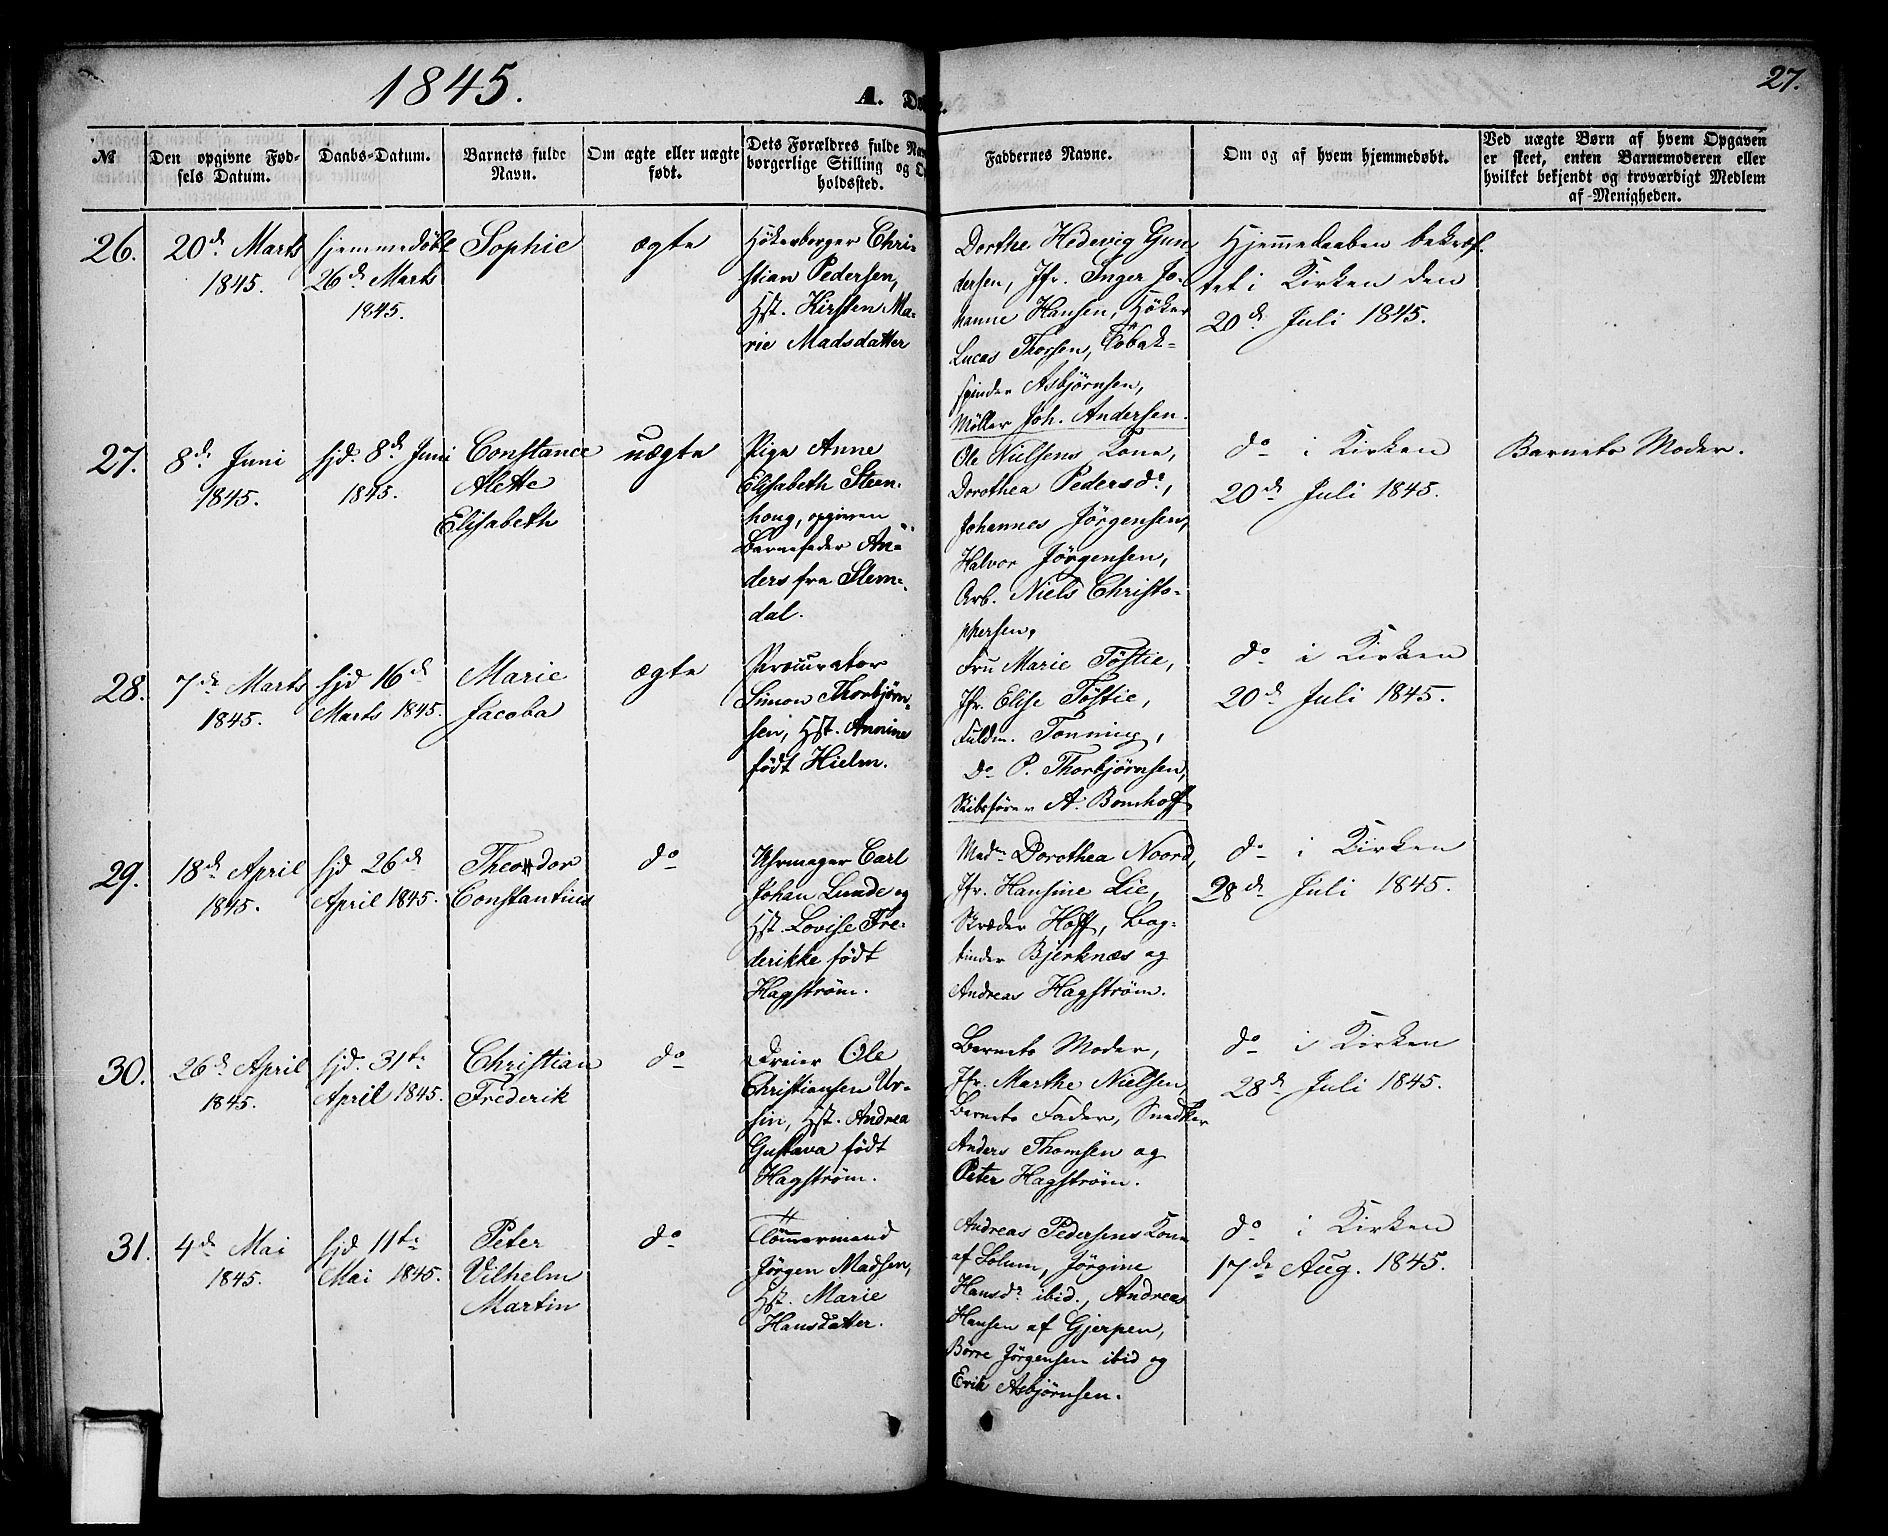 1845.
A. D
27.
No
Den opgivne Fød-
sels Datum.
Daabs-Datum.
Barnets fulde
Navn.
Om ægte eller uægte
født.
Dets Forældres fulde Na
borgerlige Stilling og O
holdssted.
Faddernes Navne.
Om og af hvem hjemmedøbt.
Ved uægte Børn af hvem Opgaven
er skeet, enten Barnemoderen eller
hvilket bekjendt og troværdigt Medlem
af Menigheden.
26.
20de Marts
1845.
hjemmedøbt
26de Marts
1845.
Sophie
ægte
Høkerborger Chri-
stian Pedersen,
Hst. Kirsten Ma-
rie Madsdatter
Dorthe Hedevig Gun-
dersen, Jfr. Inger Jo-
hanne Hansen, Høker
Lucas Thorsen, Tobak-
spinder Asbjørnsen,
Møller Joh. Andersen.
Hjemmedaaben bekræf-
tet i Kirken den
20de Juli 1845.
27.
8de Juni
1845.
hjd. 8de Juni
1845.
Constance
Alette
Elisabeth
uægte
Pige Anne
Elisabeth Steen-
houg, opgiven
Barnefader An-
ders fra Slem-
dal.
Ole Nielsens Kone,
Dorothea Pedersdr,
Johannes Jörgensen,
Halvor Jörgensen,
Arb. Niels Christo-
phersen.
do i Kirken
20de Juli 1845.
Barnets Moder.
28.
7de Marts
1845.
hjd 16de
Marts 1845.
Marie
Jacoba
ægte
Procurator
Simon Thorbjørn-
sen, Hst. Annine
født Hielm.
Fru Marie Töstie,
Jfr. Elise Töstie,
Fuldm. Tonning,
Do P. Thorbjørnsen,
Skibsfører A. Bomhoff
do i Kirken
20de Juli 1845.
29.
18de April
1845.
hjd 26de
April 1845.
Theodor
Constantius
do
Uhrmager Carl
Johan Lunde og
Hst. Lovise Fre-
derikke født
Hagström.
Madm Dorothea Noord,
Jfr. Hansine Lie,
Skræder Hoff, Bog-
binder Bjerknæs og
Andreas Hagström.
do i Kirken
28de Juli 1845.
30.
26de April
1845.
hjd. 31te
April 1845.
Christian
Frederik
do
Dreier Ole
Christiansen Ur-
sin, Hst. Andrea
Gustava født
Hagström.
Barnets Moder,
Jfr. Marthe Nielsen,
Barnets Fader, Snedker
Anders Thomsen og
Peter Hagström.
do i Kirken
28de Juli 1845.
31.
4de Mai
1845.
hjd 11te
Mai 1845.
Peter
Vilhelm
Martin
do
Tömmermand
Jörgen Madsen,
Hst. Marie
Hansdatter.
Andreas Pedersens Kone
af Solum, Jörgine
Hansdr ibid., Andreas
Hansen af Gjerpen,
Børre Jörgensen ibid og
Erik Asbjørnsen.
do i Kirken
17de Aug. 1845.